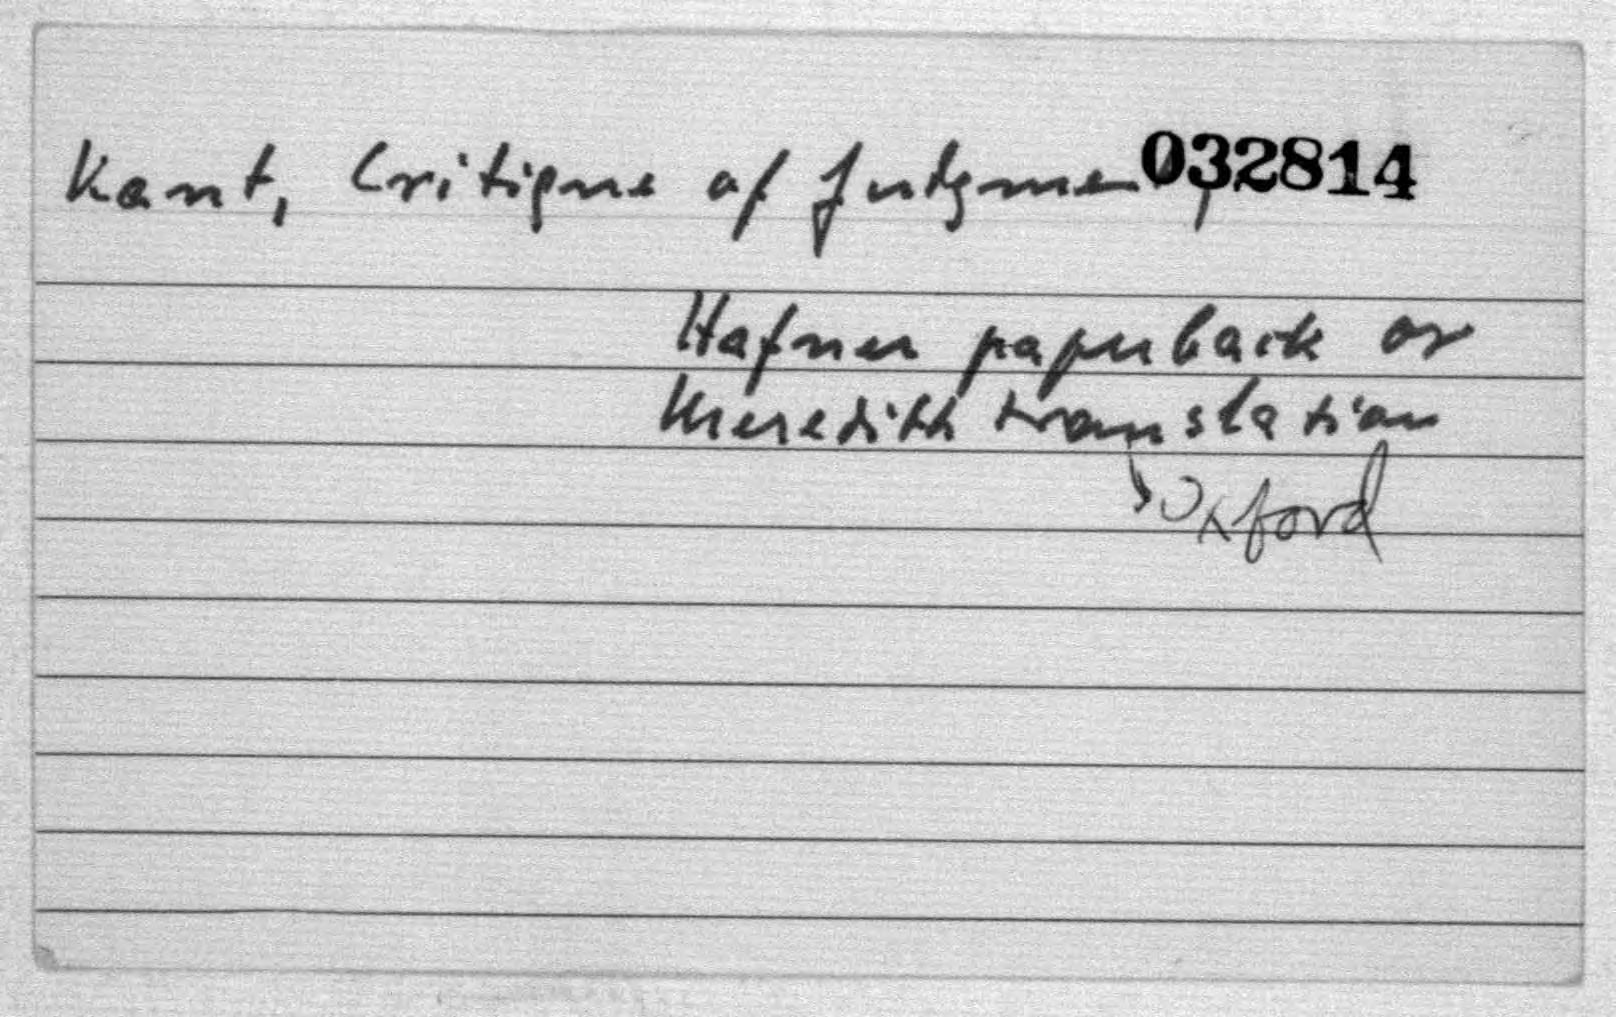 Kant, Critique of Judgment, 032814
Hafner paperback or
Meredith translation
Oxford